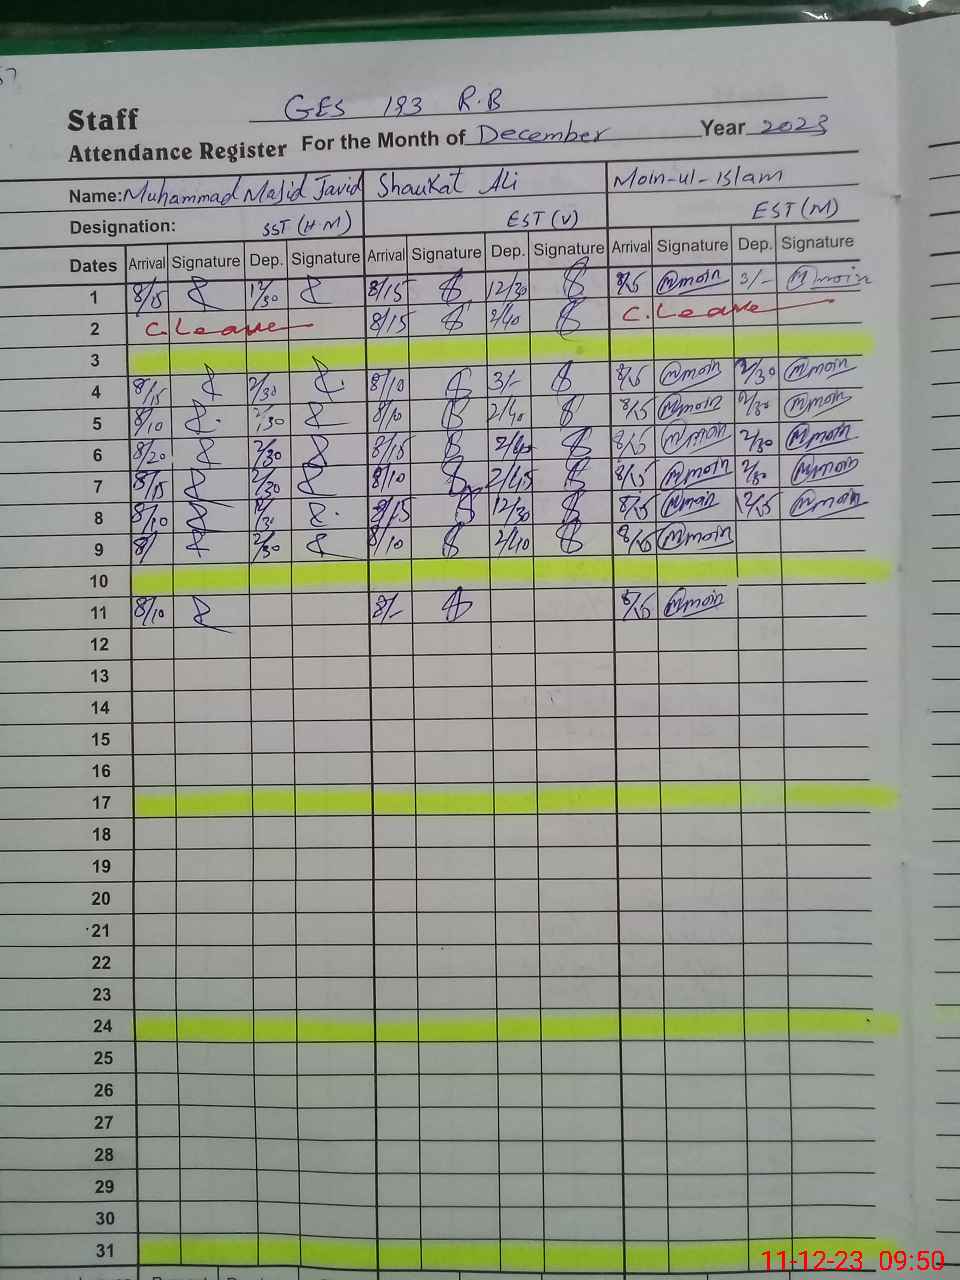 GES 193 R.B
Staff
Attendance Register For the Month of December Year 2023
Name: Muhammad Majid Javid Shaukat Ali Moin-ul-Islam
Designation: SST (H.M) EST (V) EST (M)
Dates Arrival Signature Dep. Signature Arrival Signature Dep. Signature Arrival Signature Dep. Signature
1 8/15 12/30 8/15 12/30 8/15 moin 3/- moin
2 C. Leave 8/15 2/40 C. Leave
3
4 8/15 2/30 8/10 3/- 8/15 moin 2/30 moin
5 8/10 2/30 8/10 2/40 8/15 moin 2/30 moin
6 8/20 2/30 8/15 2/45 8/15 moin 2/30 moin
7 8/15 2/30 8/10 2/45 8/15 moin 2/30 moin
8 8/10 8/15 12/30 8/15 moin 12/15 moin
9 8/ 2/30 8/10 2/40 8/15 moin
10
11 8/10 8/- 8/15 moin
12
13
14
15
16
17
18
19
20
21
22
23
24
25
26
27
28
29
30
31
11-12-23 09:50